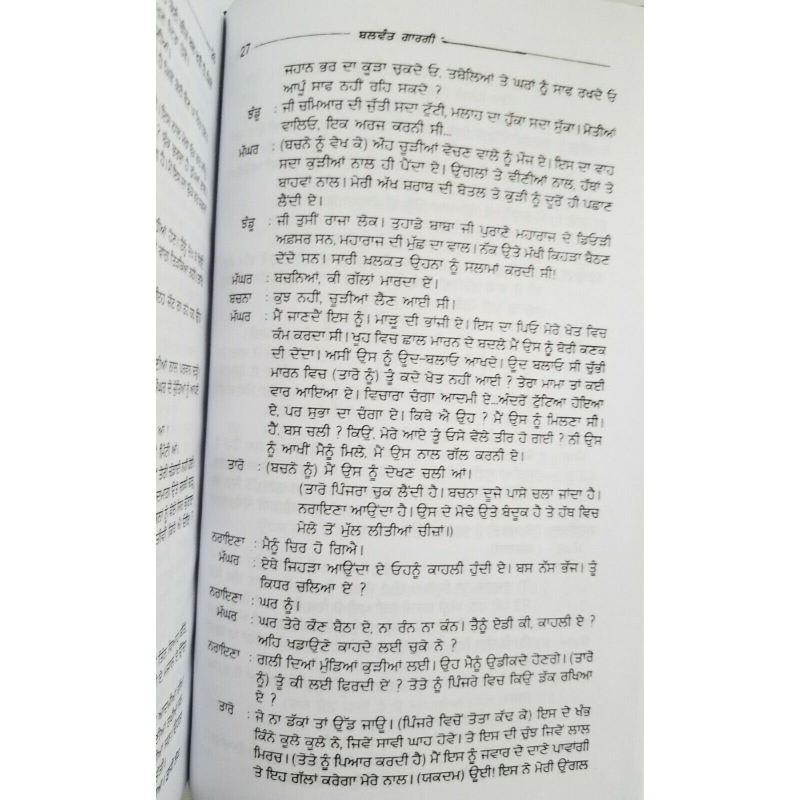 27
ਬਲਵੰਤ ਗਾਰਗੀ
ਜਹਾਨ ਭਰ ਦਾ ਕੂੜਾ ਚੁਕਦੇ ਓ, ਤਬੇਲਿਆਂ ਤੇ ਘਰਾਂ ਨੂੰ ਸਾਫ ਰਖਦੇ ਓ
ਆਪੂੰ ਸਾਫ ਨਹੀਂ ਰਹਿ ਸਕਦੇ ?
ਝੰਡੂ : ਜੀ ਚਮਿਆਰ ਦੀ ਜੁੱਤੀ ਸਦਾ ਟੁੱਟੀ, ਮਲਾਹ ਦਾ ਹੁੱਕਾ ਸਦਾ ਸੁੱਕਾ। ਮੋਤੀਆਂ
ਵਾਲਿਓ, ਇਕ ਅਰਜ ਕਰਨੀ ਸੀ...
ਮੱਘਰ : (ਬਚਨੇ ਨੂੰ ਵੇਖ ਕੇ) ਔਹ ਚੂੜੀਆਂ ਵੇਚਣ ਵਾਲੇ ਨੂੰ ਮੌਜ ਏ। ਇਸ ਦਾ ਵਾਹ
ਸਦਾ ਕੁੜੀਆਂ ਨਾਲ ਹੀ ਪੈਂਦਾ ਏ। ਉਂਗਲਾਂ ਤੇ ਵੀਣੀਆਂ ਨਾਲ, ਹੱਥਾਂ ਤੇ
ਬਾਹਵਾਂ ਨਾਲ। ਮੇਰੀ ਅੱਖ ਸ਼ਰਾਬ ਦੀ ਬੋਤਲ ਤੇ ਕੁੜੀ ਨੂੰ ਦੂਰੋਂ ਹੀ ਪਛਾਣ
ਲੈਂਦੀ ਏ।
ਝੰਡੂ : ਜੀ ਤੁਸੀਂ ਰਾਜਾ ਲੋਕ। ਤੁਹਾਡੇ ਬਾਬਾ ਜੀ ਪੁਰਾਣੇ ਮਹਾਰਾਜ ਦੇ ਡਿਓੜੀ
ਅਫ਼ਸਰ ਸਨ, ਮਹਾਰਾਜ ਦੀ ਮੁੱਛ ਦਾ ਵਾਲ। ਨੱਕ ਉਤੇ ਮੱਖੀ ਕਿਹੜਾ ਬੈਠਣ
ਦੇਂਦੇ ਸਨ। ਸਾਰੀ ਖ਼ਲਕਤ ਉਹਨਾ ਨੂੰ ਸਲਾਮਾਂ ਕਰਦੀ ਸੀ!
ਮੱਘਰ : ਬਚਨਿਆਂ, ਕੀ ਗੱਲਾਂ ਮਾਰਦਾ ਏਂ।
ਬਚਨਾ : ਕੁਝ ਨਹੀਂ, ਚੂੜੀਆਂ ਲੈਣ ਆਈ ਸੀ।
ਮੱਘਰ : ਮੈਂ ਜਾਣਦੈਂ ਇਸ ਨੂੰ। ਮਾੜੂ ਦੀ ਭਾਂਜੀ ਏ। ਇਸ ਦਾ ਪਿਓ ਮੇਰੇ ਖੇਤ ਵਿਚ
ਕੰਮ ਕਰਦਾ ਸੀ। ਖੂਹ ਵਿਚ ਛਾਲ ਮਾਰਨ ਦੇ ਬਦਲੇ ਮੈਂ ਉਸ ਨੂੰ ਬੋਰੀ ਕਣਕ
ਦੀ ਦੇਂਦਾ। ਅਸੀਂ ਉਸ ਨੂੰ ਊਦ-ਬਲਾਓ ਆਖਦੇ। ਊਦ ਬਲਾਓ ਸੀ ਚੁੱਭੀ
ਮਾਰਨ ਵਿਚ (ਤਾਰੋ ਨੂੰ) ਤੂੰ ਕਦੇ ਖੇਤ ਨਹੀਂ ਆਈ ? ਤੇਰਾ ਮਾਮਾ ਤਾਂ ਕਈ
ਵਾਰ ਆਇਆ ਏ। ਵਿਚਾਰਾ ਚੰਗਾ ਆਦਮੀ ਏ...ਅੰਦਰੋਂ ਟੁੱਟਿਆ ਹੋਇਆ
ਏ, ਪਰ ਸੁਭਾ ਦਾ ਚੰਗਾ ਏ। ਕਿਥੇ ਐ ਉਹ ? ਮੈਂ ਉਸ ਨੂੰ ਮਿਲਣਾ ਸੀ।
ਹੈਂ, ਬਸ ਚਲੀ ? ਕਿਉਂ, ਮੇਰੇ ਆਏ ਤੂੰ ਓਸੇ ਵੇਲੇ ਤੀਰ ਹੋ ਗਈ ? ਨੀ ਉਸ
ਨੂੰ ਆਖੀਂ ਮੈਨੂੰ ਮਿਲੇ, ਮੈਂ ਉਸ ਨਾਲ ਗੱਲ ਕਰਨੀ ਏ।
ਤਾਰੋ : (ਬਚਨੇ ਨੂੰ) ਮੈਂ ਉਸ ਨੂੰ ਦੇਖਣ ਚਲੀ ਆਂ।
(ਤਾਰੋ ਪਿੰਜਰਾ ਚੁਕ ਲੈਂਦੀ ਹੈ। ਬਚਨਾ ਦੂਜੇ ਪਾਸੇ ਚਲਾ ਜਾਂਦਾ ਹੈ।
ਨਰਾਇਣਾ ਆਉਂਦਾ ਏ। ਉਸ ਦੇ ਮੋਢੇ ਉਤੇ ਬੰਦੂਕ ਹੈ ਤੇ ਹੱਥ ਵਿਚ
ਮੇਲੇ ਤੋਂ ਮੁੱਲ ਲੀਤੀਆਂ ਚੀਜ਼ਾਂ।)
ਨਰਾਇਣਾ : ਮੈਨੂੰ ਚਿਰ ਹੋ ਗਿਐ।
ਮੱਘਰ : ਏਥੇ ਜਿਹੜਾ ਆਉਂਦਾ ਏ ਓਹਨੂੰ ਕਾਹਲੀ ਹੁੰਦੀ ਏ। ਬਸ ਨੱਸ ਭੱਜ। ਤੂੰ
ਕਿਧਰ ਚਲਿਆ ਏਂ ?
ਨਰਾਇਣਾ : ਘਰ ਨੂੰ।
ਮੱਘਰ : ਘਰ ਤੇਰੇ ਕੌਣ ਬੈਠਾ ਏ, ਨਾ ਰੰਨ ਨਾ ਕੰਨ। ਤੈਨੂੰ ਏਡੀ ਕੀ, ਕਾਹਲੀ ਏ ?
ਅਹਿ ਖਡਾਉਣੇ ਕਾਹਦੇ ਲਈ ਚੁਕੇ ਨੇ ?
ਨਰਾਇਣਾ : ਗਲੀ ਦਿਆਂ ਮੁੰਡਿਆਂ ਕੁੜੀਆਂ ਲਈ। ਉਹ ਮੈਨੂੰ ਉਡੀਕਦੇ ਹੋਣਗੇ। (ਤਾਰੋ
ਨੂੰ) ਤੂੰ ਕੀ ਲਈ ਫਿਰਦੀ ਏਂ ? ਤੋਤੇ ਨੂੰ ਪਿੰਜਰੇ ਵਿਚ ਕਿਉਂ ਡੱਕ ਰਖਿਆ
ਏ ?
ਤਾਰੋ : ਜੇ ਨਾ ਡੱਕਾਂ ਤਾਂ ਉੱਡ ਜਾਊ। (ਪਿੰਜਰੇ ਵਿਚੋਂ ਤੋਤਾ ਕੱਢ ਕੇ) ਇਸ ਦੇ ਖੰਭ
ਕਿੰਨੇ ਕੂਲੇ ਕੂਲੇ ਨੇ, ਜਿਵੇਂ ਸਾਵੀ ਘਾਹ ਹੋਵੇ। ਤੇ ਇਸ ਦੀ ਚੁੰਝ ਜਿਵੇਂ ਲਾਲ
ਮਿਰਚ। (ਤੋਤੇ ਨੂੰ ਪਿਆਰ ਕਰਦੀ ਹੈ) ਮੈਂ ਇਸ ਨੂੰ ਜਵਾਰ ਦੇ ਦਾਣੇ ਪਾਵਾਂਗੀ
ਤੇ ਇਹ ਗੱਲਾਂ ਕਰੇਗਾ ਮੇਰੇ ਨਾਲ। (ਯਕਦਮ) ਊਈ! ਇਸ ਨੇ ਮੇਰੀ ਉਂਗਲ